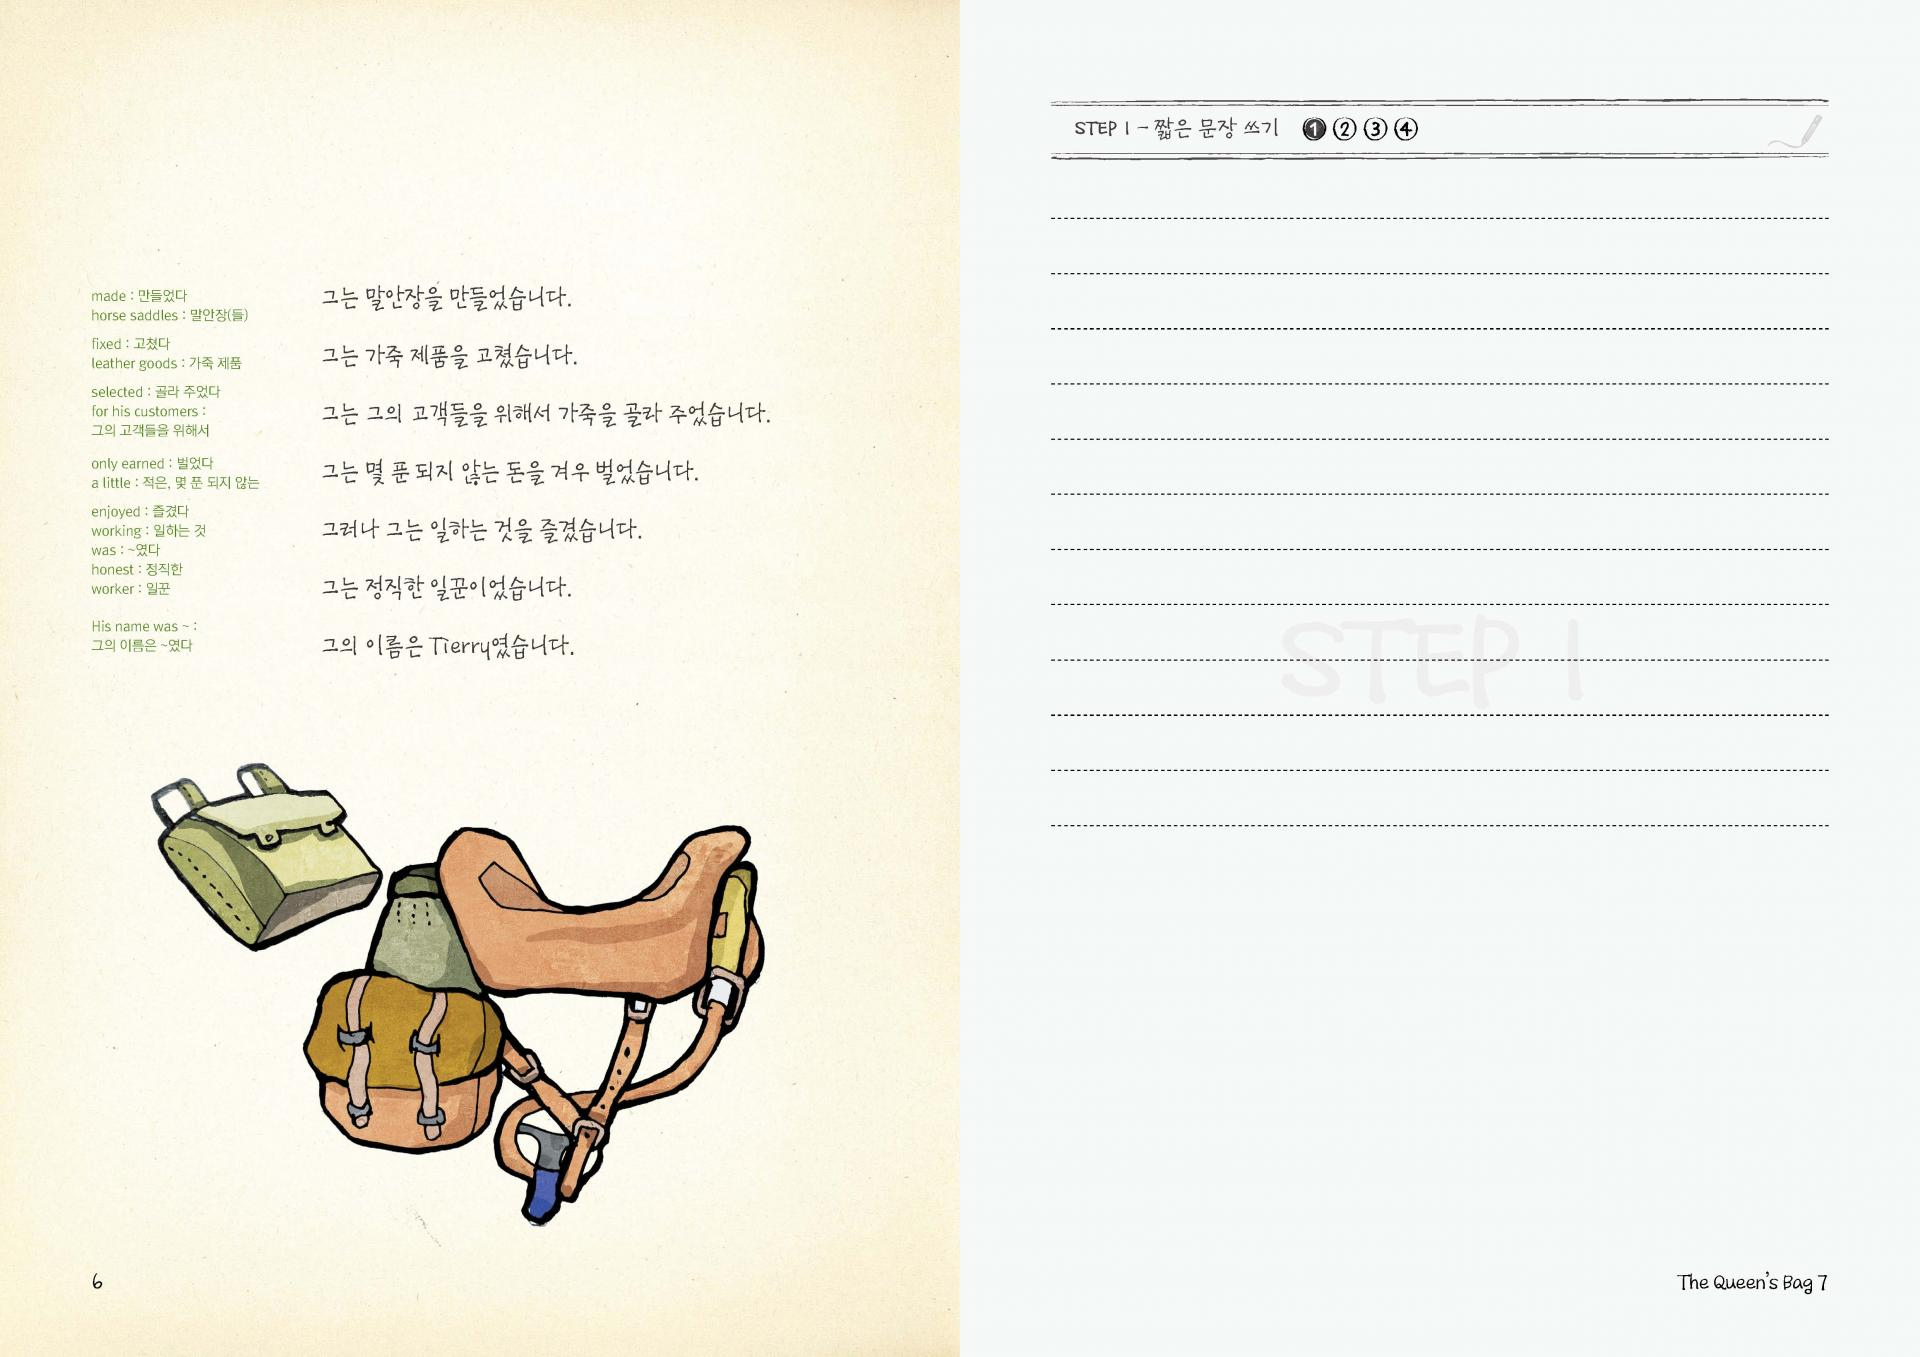 made : 만들었다
horse saddles : 말안장(들)
fixed : 고쳤다
leather goods : 가죽 제품
selected : 골라 주었다
for his customers :
그의 고객들을 위해서
only earned : 벌었다
a little : 적은, 몇 푼 되지 않는
enjoyed : 즐겼다
working : 일하는 것
was : ~였다
honest : 정직한
worker : 일꾼
His name was ~ :
그의 이름은 ~였다
그는 말안장을 만들었습니다.
그는 가죽 제품을 고쳤습니다.
그는 그의 고객들을 위해서 가죽을 골라 주었습니다.
그는 몇 푼 되지 않는 돈을 겨우 벌었습니다.
그러나 그는 일하는 것을 즐겼습니다.
그는 정직한 일꾼이었습니다.
그의 이름은 Tierry였습니다.
6
STEP 1 - 짧은 문장 쓰기 1 2 3 4
STEP 1
The Queen's Bag 7